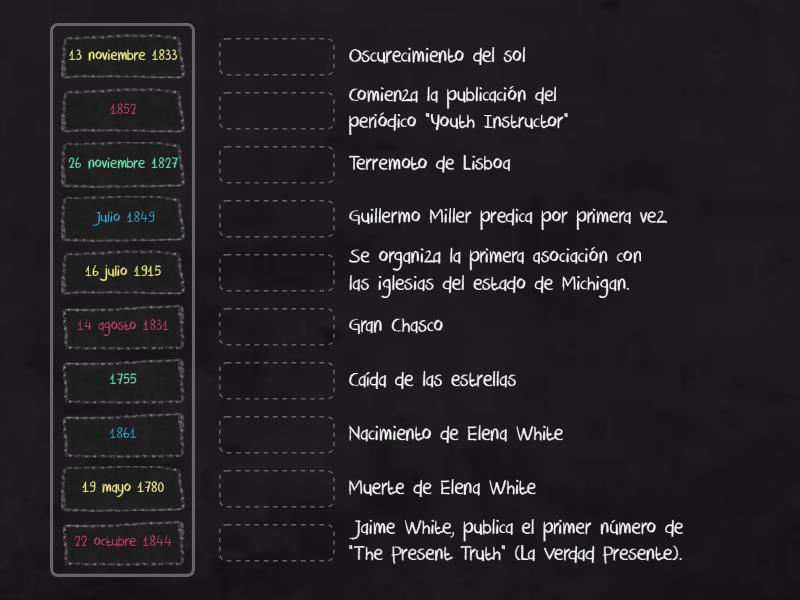 13 noviembre 1833
Oscurecimiento del sol
1852
Comienza la publicación del
periódico "Youth Instructor"
26 noviembre 1827
Terremoto de Lisboa
Julio 1849
Guillermo Miller predica por primera vez
16 julio 1915
Se organiza la primera asociación con
las iglesias del estado de Michigan.
14 agosto 1831
Gran Chasco
1755
Caída de las estrellas
1861
Nacimiento de Elena White
19 mayo 1780
Muerte de Elena White
22 octubre 1844
Jaime White, publica el primer número de
"The Present Truth" (La Verdad Presente).